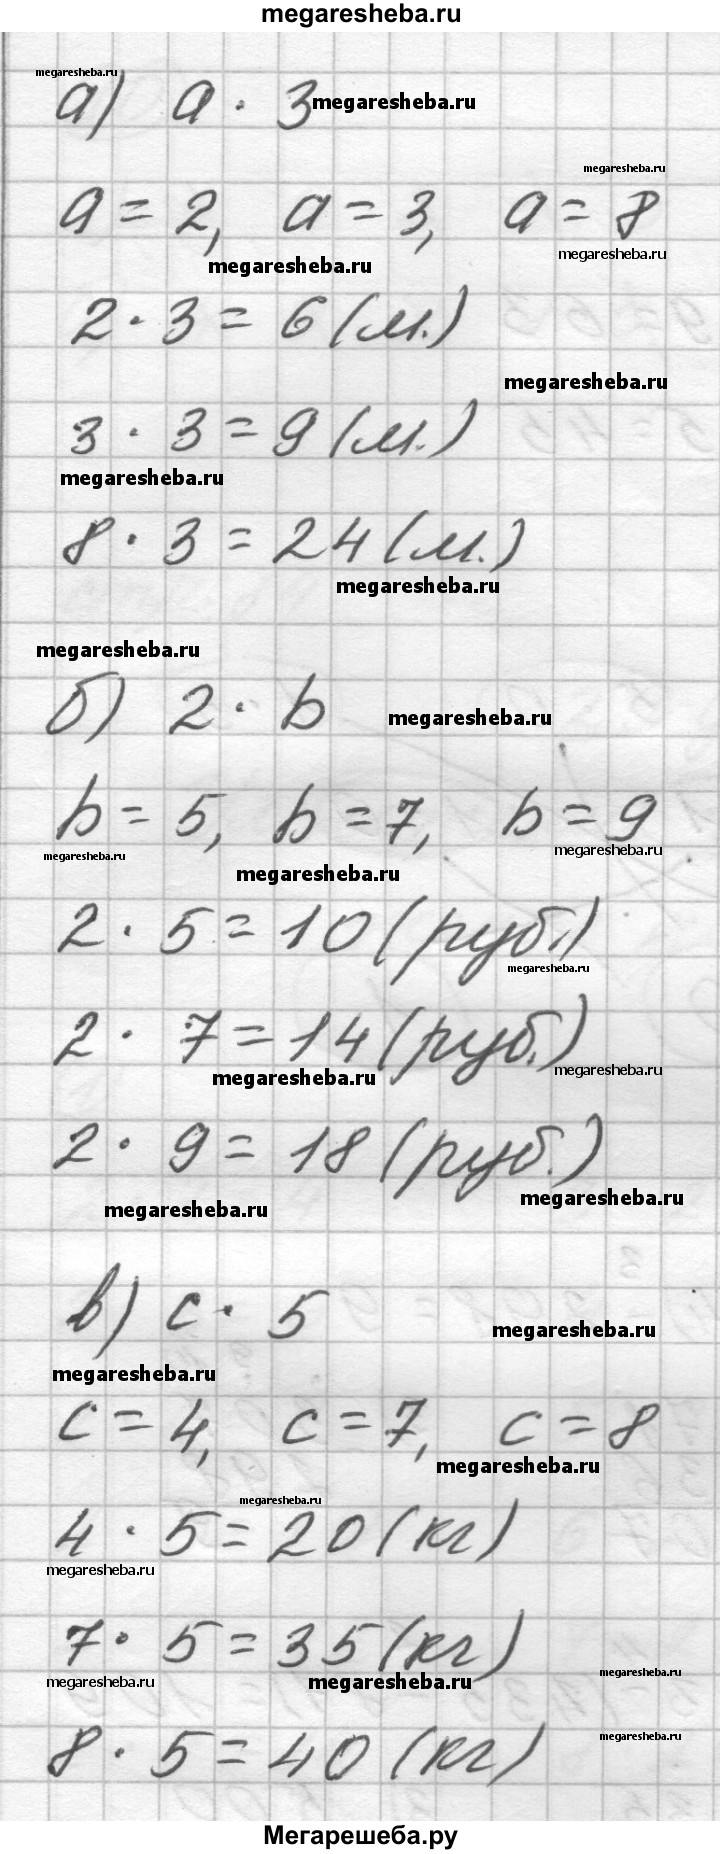 megaresheba.ru
megaresheba.ru
а) a · 3 megaresheba.ru
megaresheba.ru
a = 2, a = 3, a = 8
megaresheba.ru megaresheba.ru
2 · 3 = 6 (м.)
megaresheba.ru
3 · 3 = 9 (м.)
megaresheba.ru
8 · 3 = 24 (м.)
megaresheba.ru
megaresheba.ru
б) 2 · b megaresheba.ru
b = 5, b = 7, b = 9
megaresheba.ru megaresheba.ru megaresheba.ru
2 · 5 = 10 (руб.)
megaresheba.ru
2 · 7 = 14 (руб.)
megaresheba.ru megaresheba.ru
2 · 9 = 18 (руб.)
megaresheba.ru megaresheba.ru
в) c · 5 megaresheba.ru
megaresheba.ru
c = 4, c = 7, c = 8
megaresheba.ru
megaresheba.ru
4 · 5 = 20 (кг)
megaresheba.ru
7 · 5 = 35 (кг)
megaresheba.ru megaresheba.ru megaresheba.ru
8 · 5 = 40 (кг) megaresheba.ru
Мегарешеба.ру